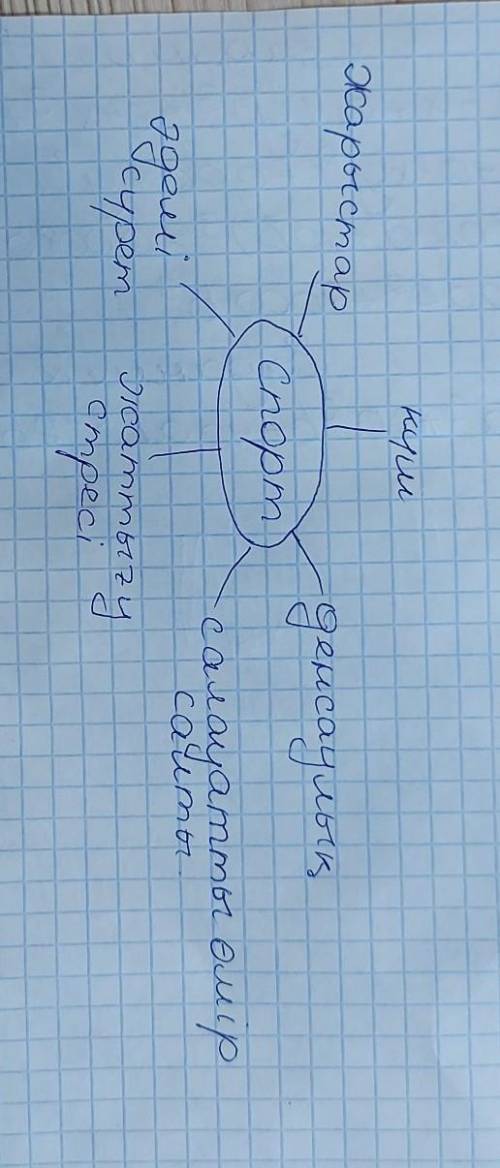 күш
Жарыстар
денсаулық
Спорт
әдемі
сурет
салауатты өмір
салты
Жаттығу
стресі